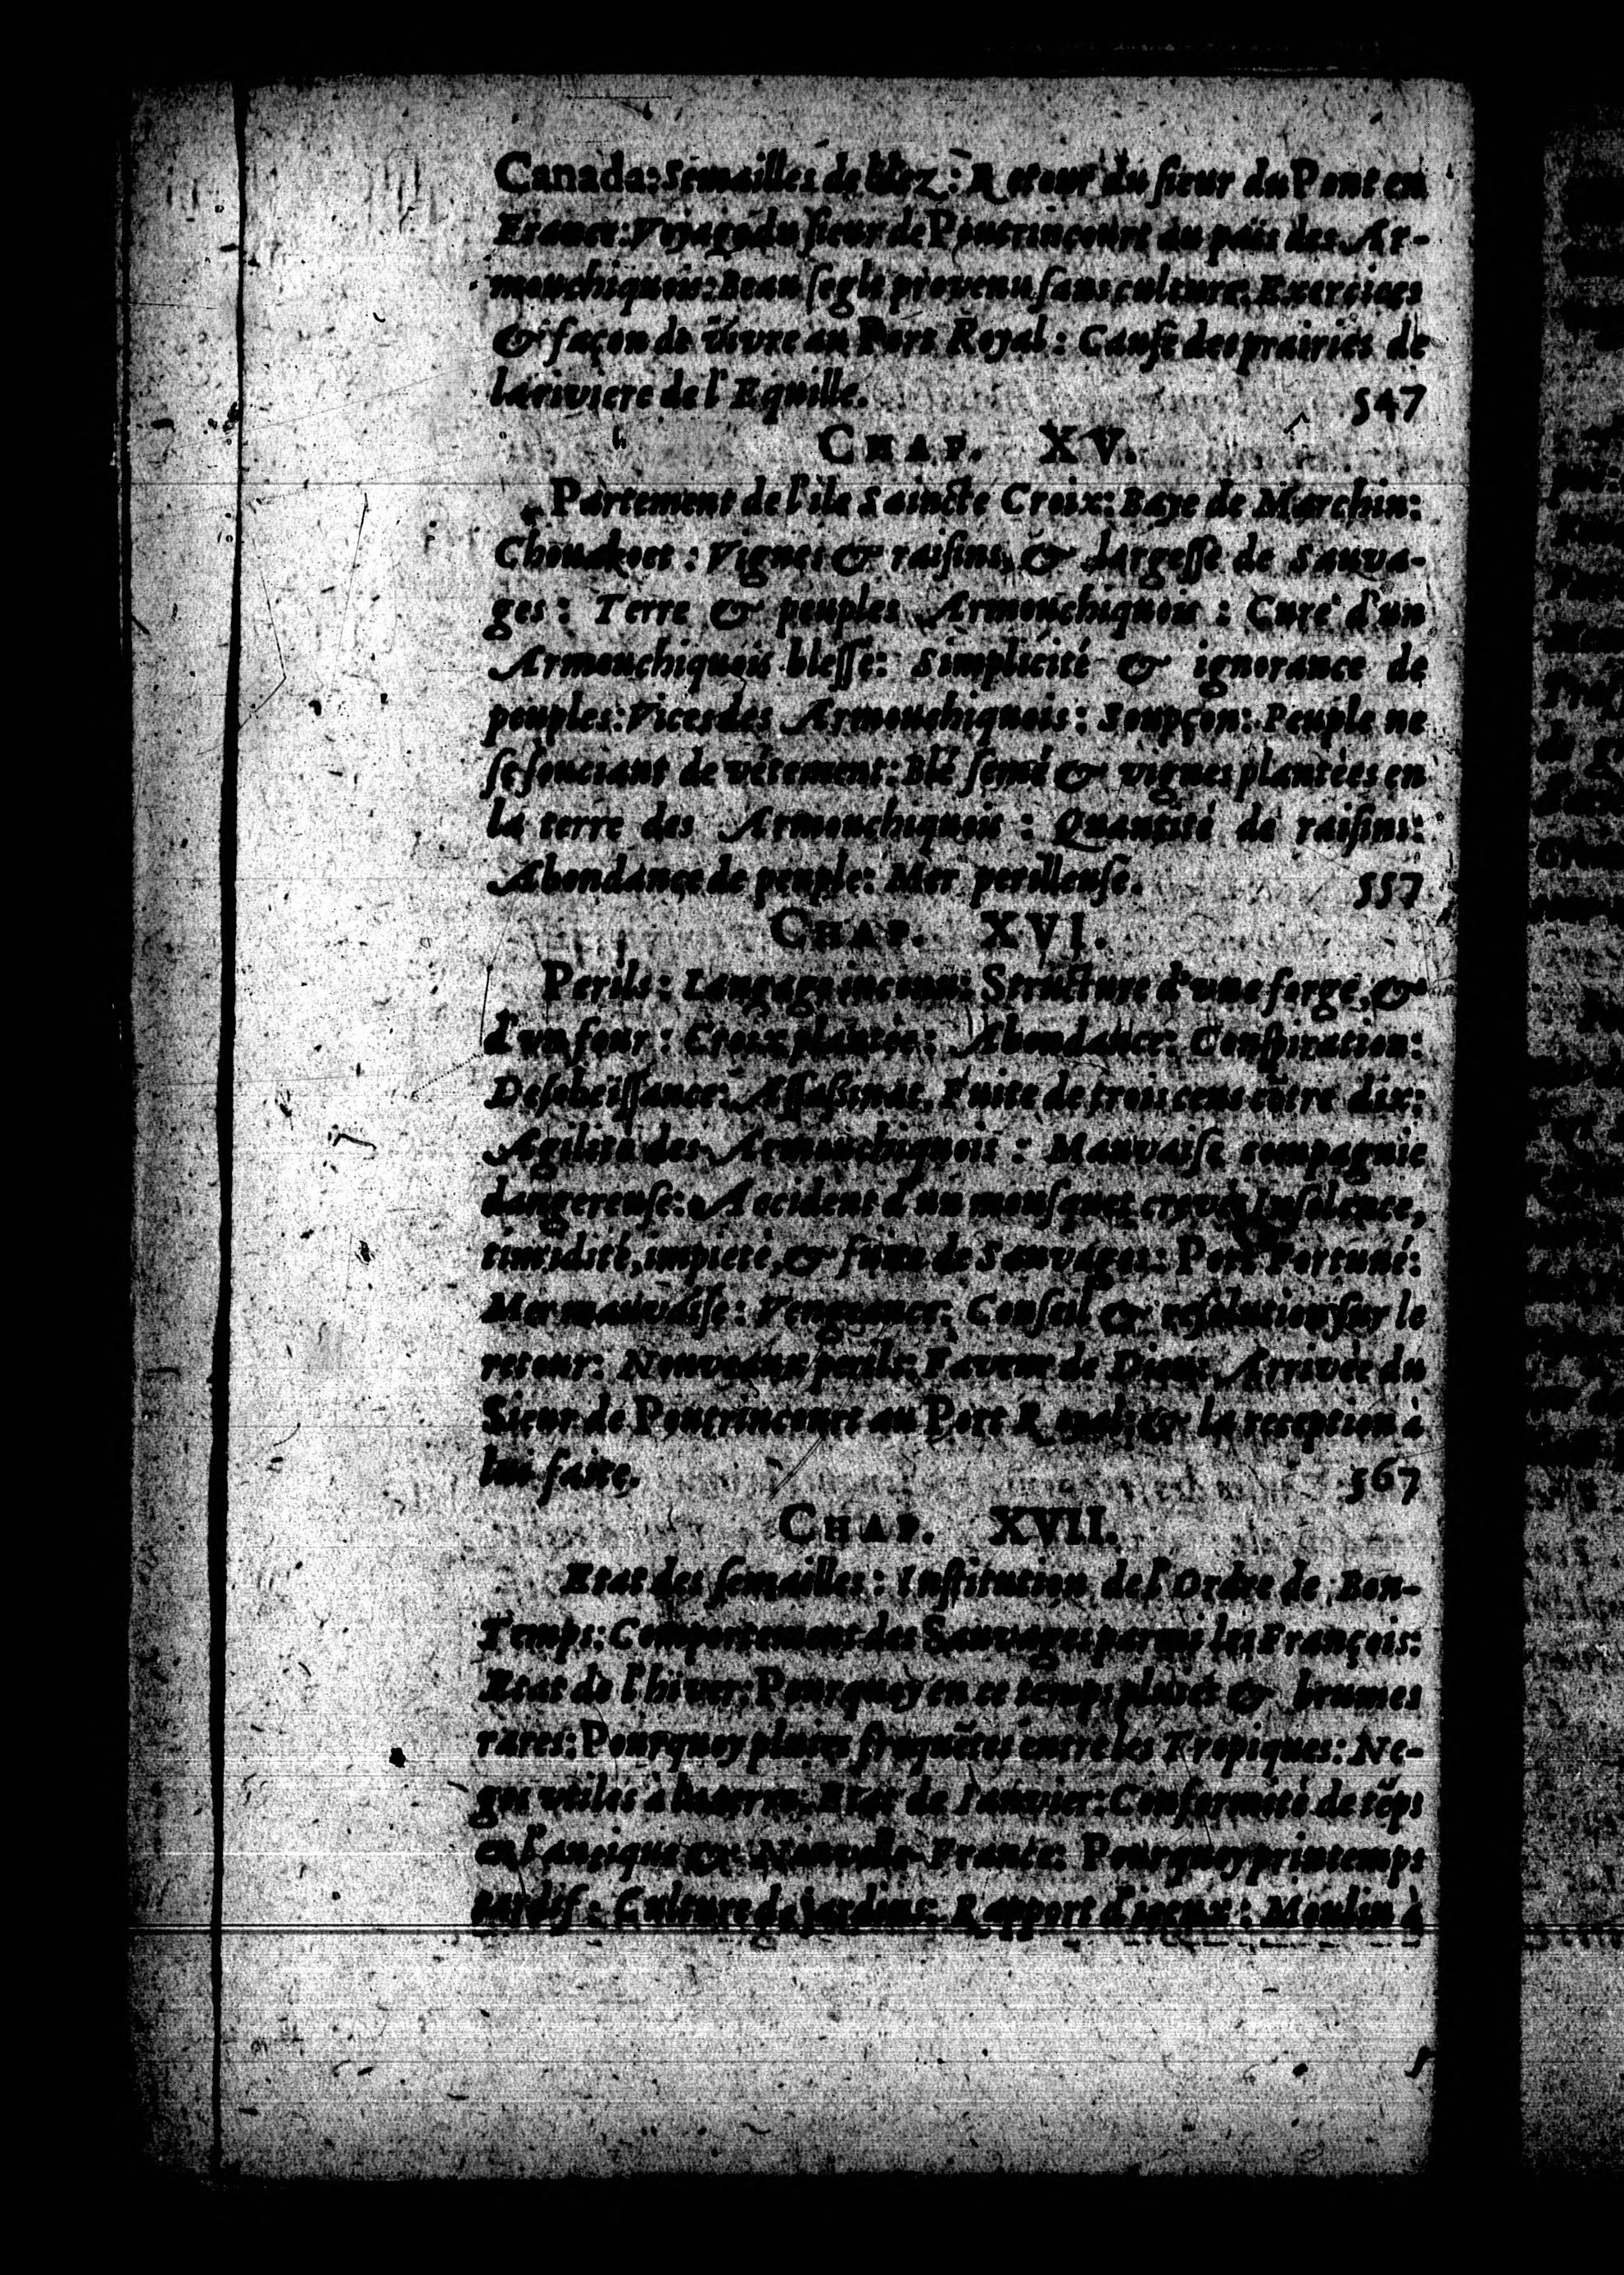 Canada: Semailles de blez: Retour du sieur du Pont en
France: Voyage du sieur de Poutrincourt au païs des Ar-
mouchiquois: Beau segle provenu sans culture: Exercices
& façon de vivre au Port Royal: Cause des prairies de
la riviere de l'Equille. 547
CHAP. XV.
Partement de l'ile Saincte Croix: Baye de Marchin:
Chouakoet: Vignes & raisins, & largesse de Sauva-
ges: Terre & peuples Armouchiquois: Cure d'un
Armouchiquois blessé: Simplicité & ignorance de
peuples: Vices des Armouchiquois: Soupçon: Peuple ne
se souciant de vétement: Blé semé & vignes plantées en
la terre des Armouchiquois: Quantité de raisins:
Abondance de peuple: Mer perilleuse. 557
CHAP. XVI.
Perils: Langage inconu: Structure d'une forge, &
d'un four: Croix plantée: Abondance: Conspiration:
Desobeissance: Assassinat: Fuite de trois cens cõtre dix:
Agilité des Armouchiquois: Mauvaise compagnie
dangereuse: Accident d'un mousquet crevé: Insolence,
timidité, impieté, & fuite de Sauvages: Port Fortuné:
Mer mauvaise: Vengeance: Conseil & resolution sur le
retour: Nouveaux perils: Faveur de Dieu: Arrivée du
Sieur de Poutrincourt au Port Royal: & la reception à
lui faite. 567
CHAP. XVII.
Etat des semailles: Institution de l'Ordre de Bon-
Temps: Comportement des Sauvages parmi les François:
Etat de l'hiver: Pourquoy en ce temps pluies & brumes
rares: Pourquoy pluies frequẽtes entre les Tropiques: Ne-
ges utiles à la terre: Etat de Ianvier: Conformité de tẽps
en l'antique & Nouvelle-France: Pourquoy printemps
tardif: Culture de jardins: Rapport d'iceux: Moulin à